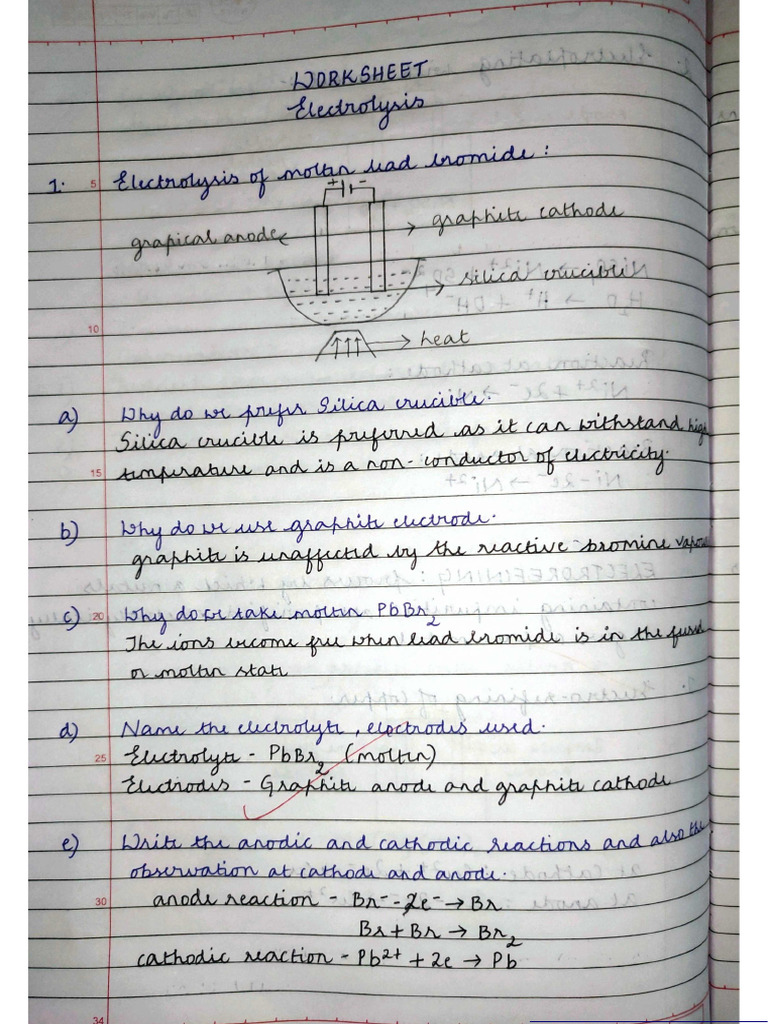 WORKSHEET
Electrolysis
1. Electrolysis of molten lead bromide :
+ -
grapical anode
graphite cathode
silica crucible
heat
a) Why do we prefer Silica crucible.
Silica crucible is preferred as it can withstand high
temperature and is a non-conductor of electricity.
b) Why do we use graphite electrode.
graphite is unaffected by the reactive bromine vapou
c) Why do we take molten PbBr2
The ions become free when lead bromide is in the fused
or molten state
d) Name the electrolyte, electrodes used.
Electrolyte - PbBr2 (molten)
Electrodes - Graphite anode and graphite cathode
e) Write the anodic and cathodic reactions and also the
observation at cathode and anode.
anode reaction - Br⁻ - e⁻ → Br
Br + Br → Br2
cathodic reaction - Pb²⁺ + 2e → Pb
5
10
15
20
25
30
34